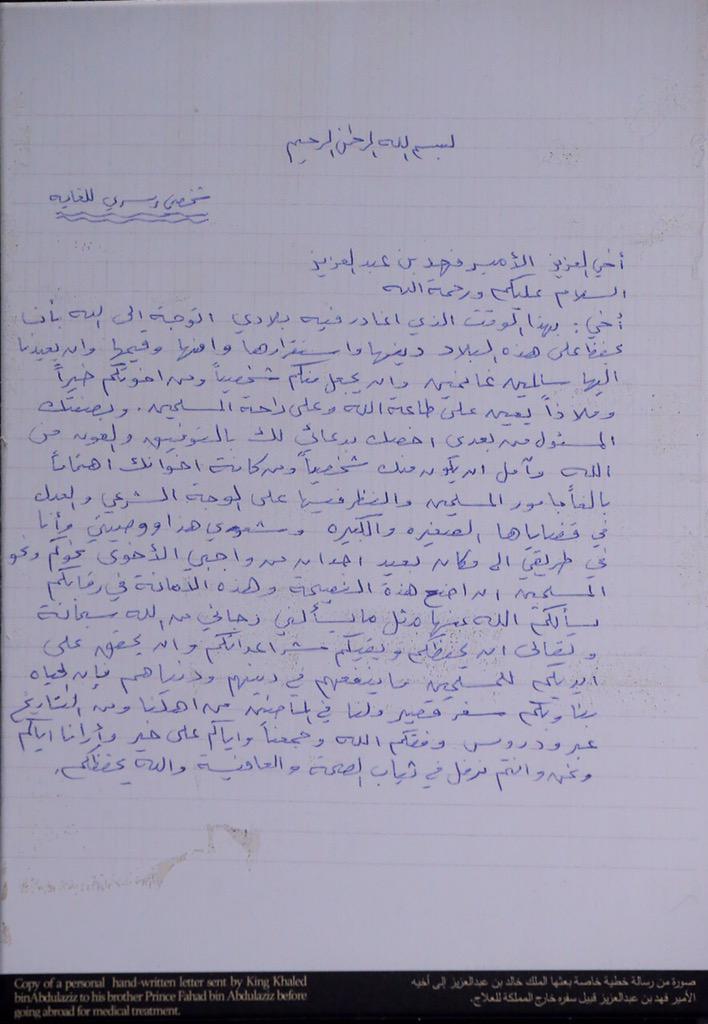 بسم الله الرحمن الرحيم
شخصي وسري للغاية
أخي العزيز الأمير فهد بن عبد العزيز
السلام عليكم ورحمة الله
أخي: بهذا الوقت الذي اغادر فيه بلادي اتوجة الى الله بأن
يحفظ على هذه البلاد دينها واستقرارها وامنها وقيمها وان يعيدنا
اليها سالمين غانمين وان يجعل منكم شخصياً ومن اخوتكم خيراً
وملاذاً يعين على طاعة الله وعلى راحة المسلمين. وبصفتك
المسئول من بعدي اخصك بدعائي لك بالتوفيق والعون من
الله وآمل ان يكون منك شخصياً ومن كافة اخوانك اهتماماً
بالغاً بامور المسلمين والنظر فيها على الوجة الشرعي والعدل
في قضاياها الصغيره والكبيره وشعوري هذا ووصيتي وأنا
في طريقي الى مكان بعيد اجد ان من واجبي الأخوي نحوكم ونحو
المسلمين ان اضع هذة النصيحة وهذه الامانة في رقابكم
يسألكم الله عنها مثل ما يسألني رجائي من الله سبحانة
وتعالى ان يحفظكم ويقيكم شر اعدائكم وان يحقق على
ايديكم للمسلمين ما ينفعهم في دينهم ودنياهم فإن الحياه
بنا وبكم سفر قصير ولنا في الماضين من اهلنا ومن التاريخ
عبر ودروس وفقكم الله وجمعنا واياكم على خير وأرانا اياكم
ونحن وانتم نرفل في ثياب الصحة والعافية والله يحفظكم.
صورة من رسالة خطية خاصة بعثها الملك خالد بن عبدالعزيز إلى أخيه
الأمير فهد بن عبدالعزيز قبيل سفره خارج المملكة للعلاج.
Copy of a personal hand-written letter sent by King Khaled
binAbdulaziz to his brother Prince Fahad bin Abdulaziz before
going abroad for medical treatment.